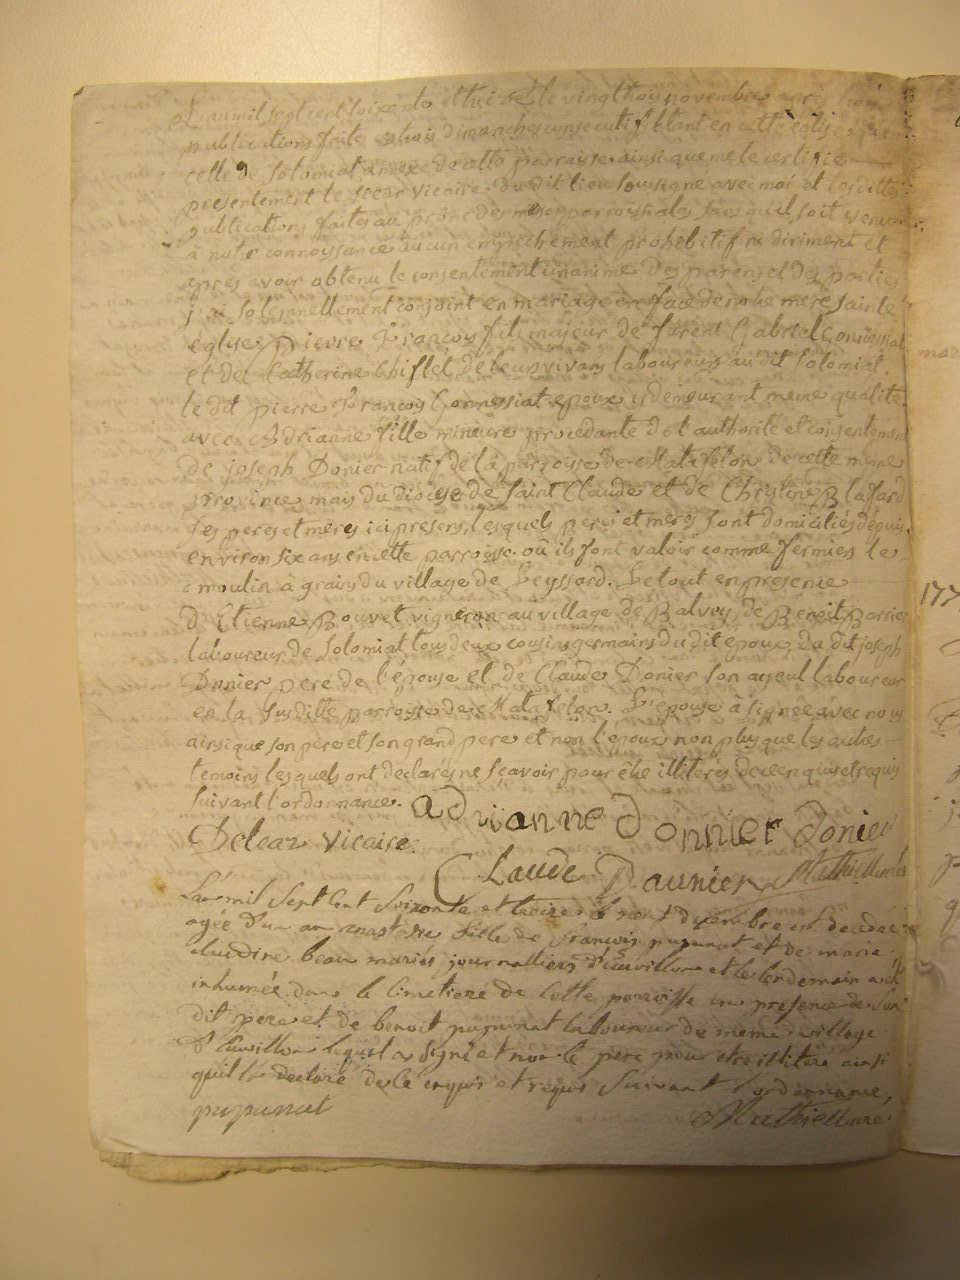 L'an mil sept cent soixante et treize le vingt trois novembre apres trois
publications faites es trois dimanches consecutifs tant en cette eglise qu'en
celle de Solomiat annexe de cette parroisse ainsi que me le certifie
presentement le sieur vicaire du dit lieu soussigné avec moi et les dittes
publications faites au prône des messes parroissiales sans qu'il soit venu
à notre connoissance aucun empechement prohibitif ni diriment et
apres avoir obtenu le consentement unanime des parens et des parties
j'ai solemnellement conjoint en mariage en face de notre mere sainte
eglise Pierre François fils majeur de furent Gabriel Gonnessiat
et de Catherine Chiflet de leurs vivans laboureurs au dit Solomiat.
le dit pierre François Gonnessiat epoux y demeurant meme qualité
avec Adrianne fille mineure procedante de l'authorité et consentement
de joseph Donier natif de la parroisse de Matafelon de cette meme
province mais du diocese de Saint Claude et de Christine Blassard
ses peres et meres ici presens, lesquels peres et meres sont domiciliés depuis
environ six ans en cette parroisse où ils font valoir comme fermiers le
moulin à grains du village de Leyssard. Le tout en presence
d'Etienne Bouvet vigneron au village de Balvoy de Benoit Barrie
laboureur de Solomiat tous deux cousins germains du dit epoux, du dit joseph
Donier pere de l'épouse et de Claude Donier son ayeul laboureur
en la susditte parroisse de Matafelon. L'epouse à signée avec nous
ainsi que son pere et son grand pere et non l'epoux non plus que les autres
temoins lesquels ont declarés ne scavoir pour être illiterés de ce enquis et requis
suivant l'ordonnance. adrianne donnier donier
Deleaz vicaire.
Claude Daunier Mathieu
L'an mil sept cent soixante et treize le neuf decembre est decedée
agée d'un an anastasie fille de françois pupunat et de marie
claudine beau mariés journalliers d' et le lendemain a eté
inhumée dans le cimetiere de cette parroisse en presence de son
dit pere et de benoit pupunat laboureur du meme village
lequel a signé et non le pere pour etre illiteré ainsi
qu'il l'a declaré de ce enquis et requis suivant l'ordonnance,
pupunat
177